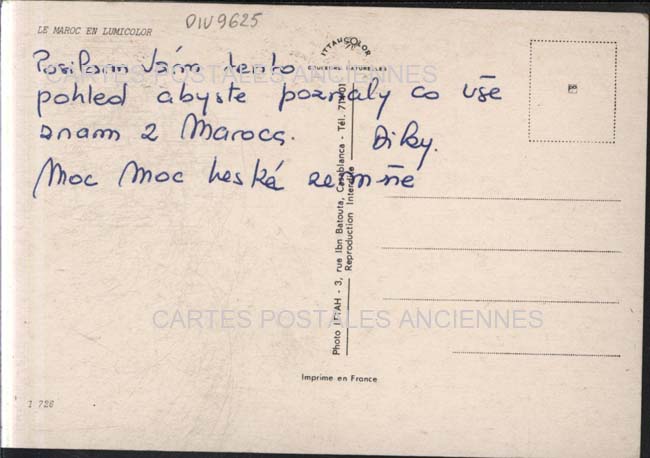 DIV9625
LE MAROC EN LUMICOLOR
ITTAHCOLOR
COULEURS NATURELLES
Posílam Vám tento
pohled abyste poznaly co vše
znam z Maroca. Díky.
Moc Moc heská zem
CARTES POSTALES ANCIENNES
CARTES POSTALES ANCIENNES
Photo ITTAH - 3, rue Ibn Batouta, Casablanca - Tél.
Reproduction Interdite
Imprime en France
1 726